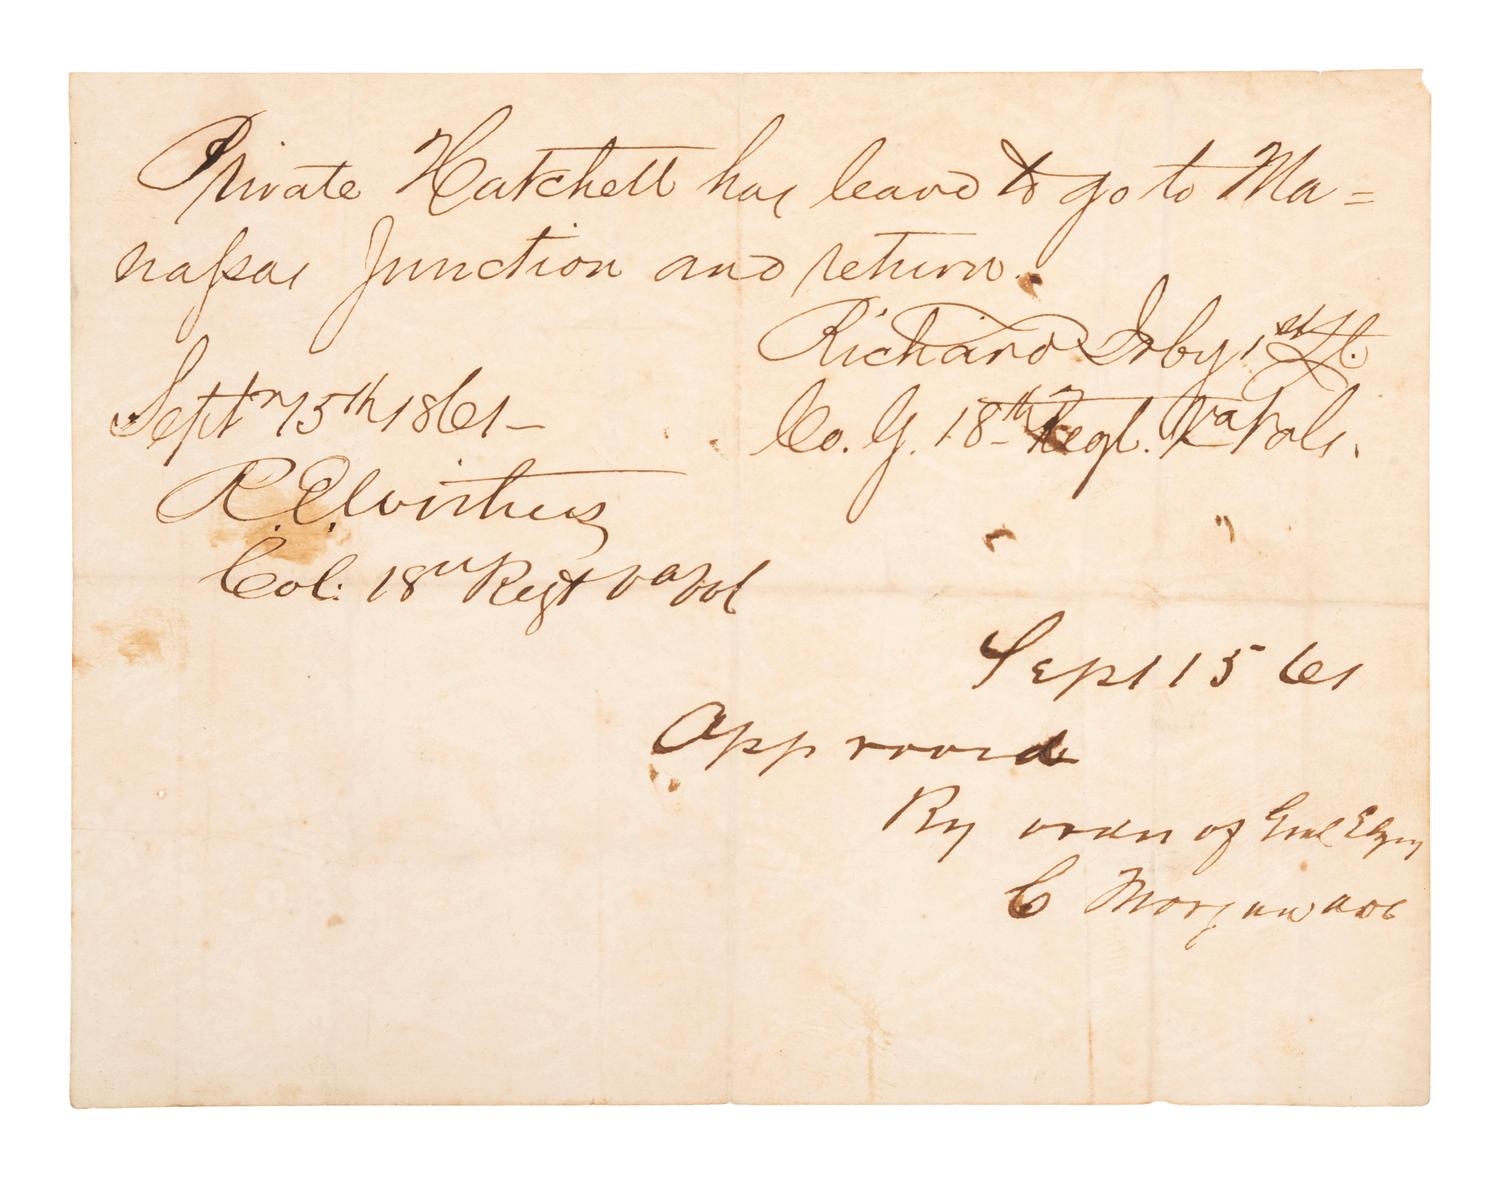 Private Hatchett has leave to go to Ma=
nassas Junction and return.
Richard Irby 1st Lt.
Co. G. 18th Regt. Va Vols.
Septr 15th 1861—
R. E. Withers
Col: 18th Regt Va Vol
Sept 15 61
Approved
By order of Genl
C Morgan ADC